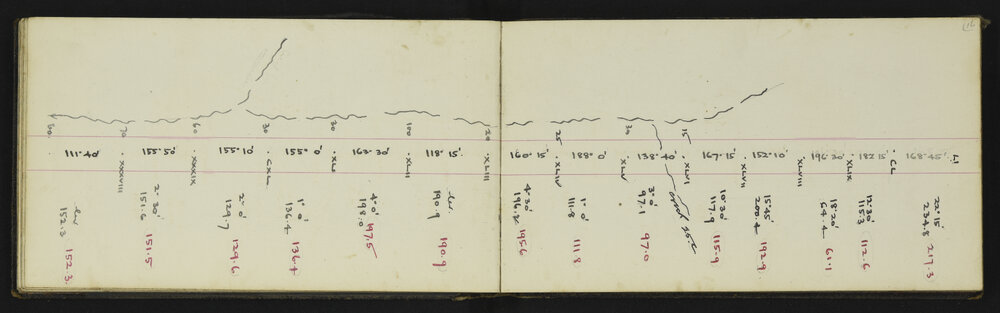 60. 70 60 30 30 100 20 25 30 15
111.40' .XXXVIII 155.50' .XXXIX 155°10' .CXL 155°0' .XLI 162.30' .XLII 118°15' .XLIII 160.15' .XLIV 188° 0' .XLV 138°40' .XLVI 167.15' .XLVII 152°10' .XLVIII 196.20' .XLIX 182 15' .CL 168.45' LI
lev 152.3 152.3.
2.30' 151.6 151.5
2°0' 129.7 129.6
1° 0' 136.4 136.4
4.0' 198.0 197.5
lev. 190.9 190.9
4.30' 196.2 195.6
1° 0' 111.8 111.8
3°0' 97.1 97.0
creek
10°30' 117.9 115.9
15°45' 200.4 192.9
18°20' 64.4 61.1
12°30' 115.3 112.6
22°15' 234.8 217.3